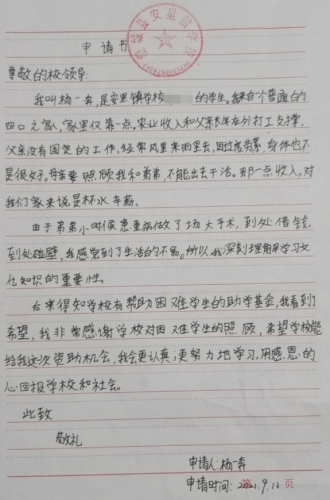 申请书
尊敬的校领导:
我叫杨一奔,是安里镇学校 的学生。我来自个普通的
四口之家,家里仅靠一点农业收入和父亲大年在外打工支撑,
父亲没有固定的工作,经常风里来雨里去,因过度劳累,身体也不
是很好。母亲要照顾我和弟弟,不能出去干活。那一点收入,对
我们家来说是杯水车薪。
由于弟弟小时候患重病做了场大手术,到处借钱,
到处碰壁,我感觉到了生活的不易。所以,我深刻理解早学习文
化知识的重要性。
后来得知学校有帮助困难学生的助学基金,我看到
希望,我非常感谢学校对困难学生的照顾,希望学校能
给我这次资助机会,我会更认真,更努力地学习,用感恩的
心回报学校和社会。
此致
敬礼
申请人:杨一奔
申请时间:2021.9.12
第 页